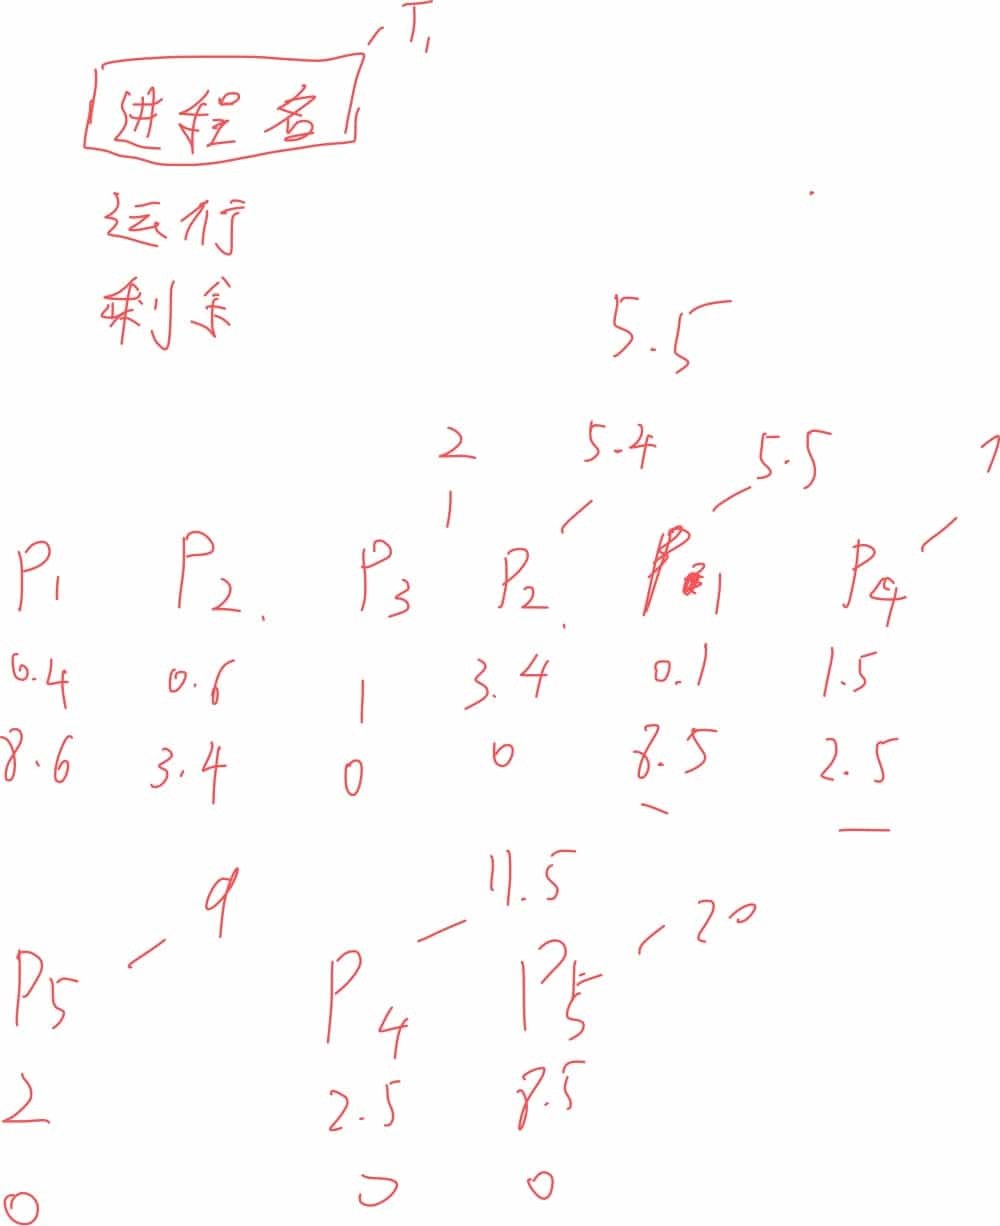 T1
进程名
运行
剩余
5.5
2 5.4 5.5 7
P1 P2. P3 P2. P1 P4
0.4 0.6 1 3.4 0.1 1.5
8.6 3.4 0 0 8.5 2.5
9 11.5 20
P5 P4 P5
2 2.5 8.5
0 0 0